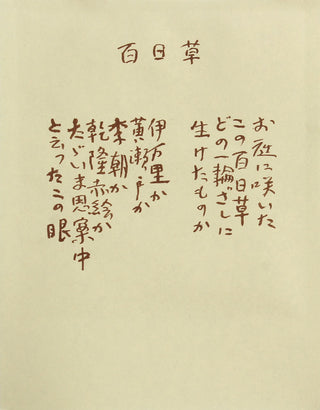 百日草
お庭に咲いた
この百日草
どの一輪ざしに
生けたものか
伊万里か
黄瀬戸か
李朝か
乾隆赤絵か
たゞいま思案中
と云ったこの眼